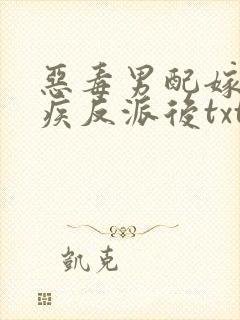 惡毒男配嫁
疾反派後txt
凱克